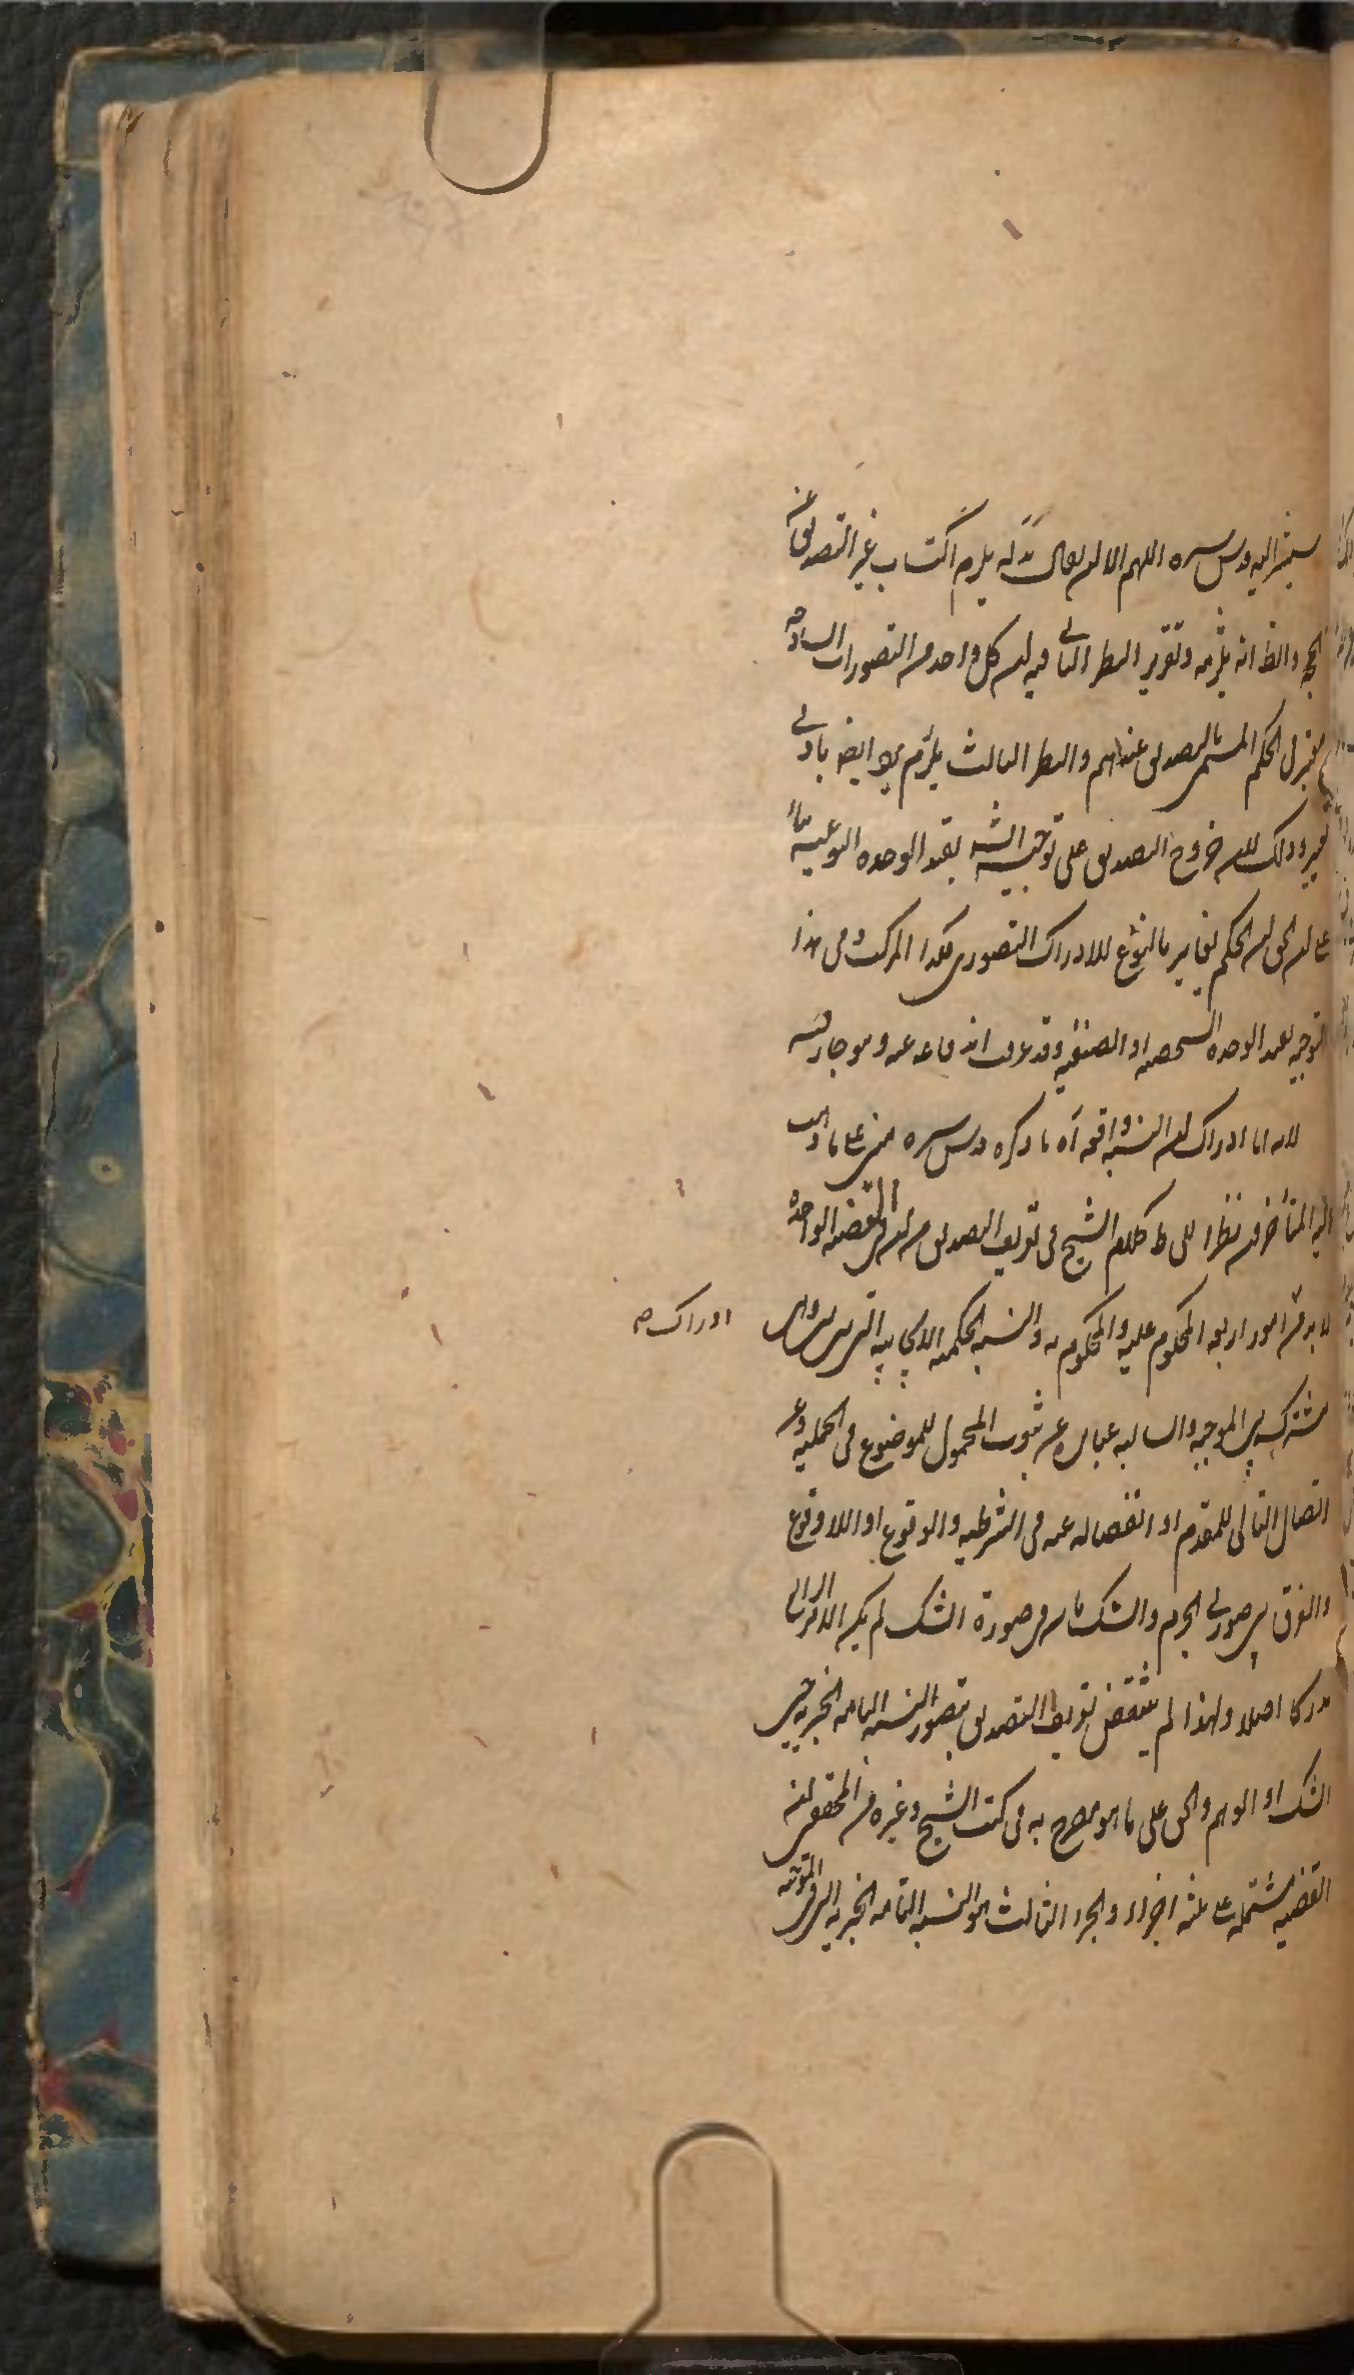 سيشير اليه قدس سره اللهم الا ان يقال انه يلزم اكتساب غير التصديق عن
الحجة والظ انه يلزمه وتقرير النظر الثاني فيه ان كل واحد من التصورات الساذجة
الحكم المسمى بالتصديق عندهم والنظر الثالث يلزم ايضا بادنى
تغيير وذلك لان خروج التصديق على توجيه الشه بقيد الوحدة النوعية
على ان الحق ان الحكم يغاير بالنوع للادراك التصوري فكذا المركب وفي هذا
التوجيه بقيد الوحدة الشخصية او الصنفية وقد عرفت اندفاعه
لانه اما ادراك ان النسبة واقعة آه ما ذكره قدس سره مبني على ما ذهب
اليه المتأخرون نظرا الى ظ كلام الشيخ في تعريف التصديق من ان في القضية الواحدة
لا بد من امور اربعة المحكوم عليه والمحكوم به والنسبة الحكمية الايجابية التي
ادراك صه
مشترك بين الموجبة والسالبة عبارة عن ثبوت المحمول للموضوع في الحملية وعن
اتصال التالي للمقدم او انفصاله عنه في الشرطية والوقوع او اللاوقوع
والفرق بين صورتي الجزم والشك بان في صورة الشك لم يكن الامر الرابع
مدركا اصلا ولهذا لم ينتقض تعريف التصديق بتصور النسبة التامة الخبرية حين
الشك او الوهم والحق على ما هو مصرح به في كتب الشيخ وغيره من المحققين ان
القضية مشتملة على ثلثة اجزاء والجزء الثالث هو النسبة التامة الخبرية